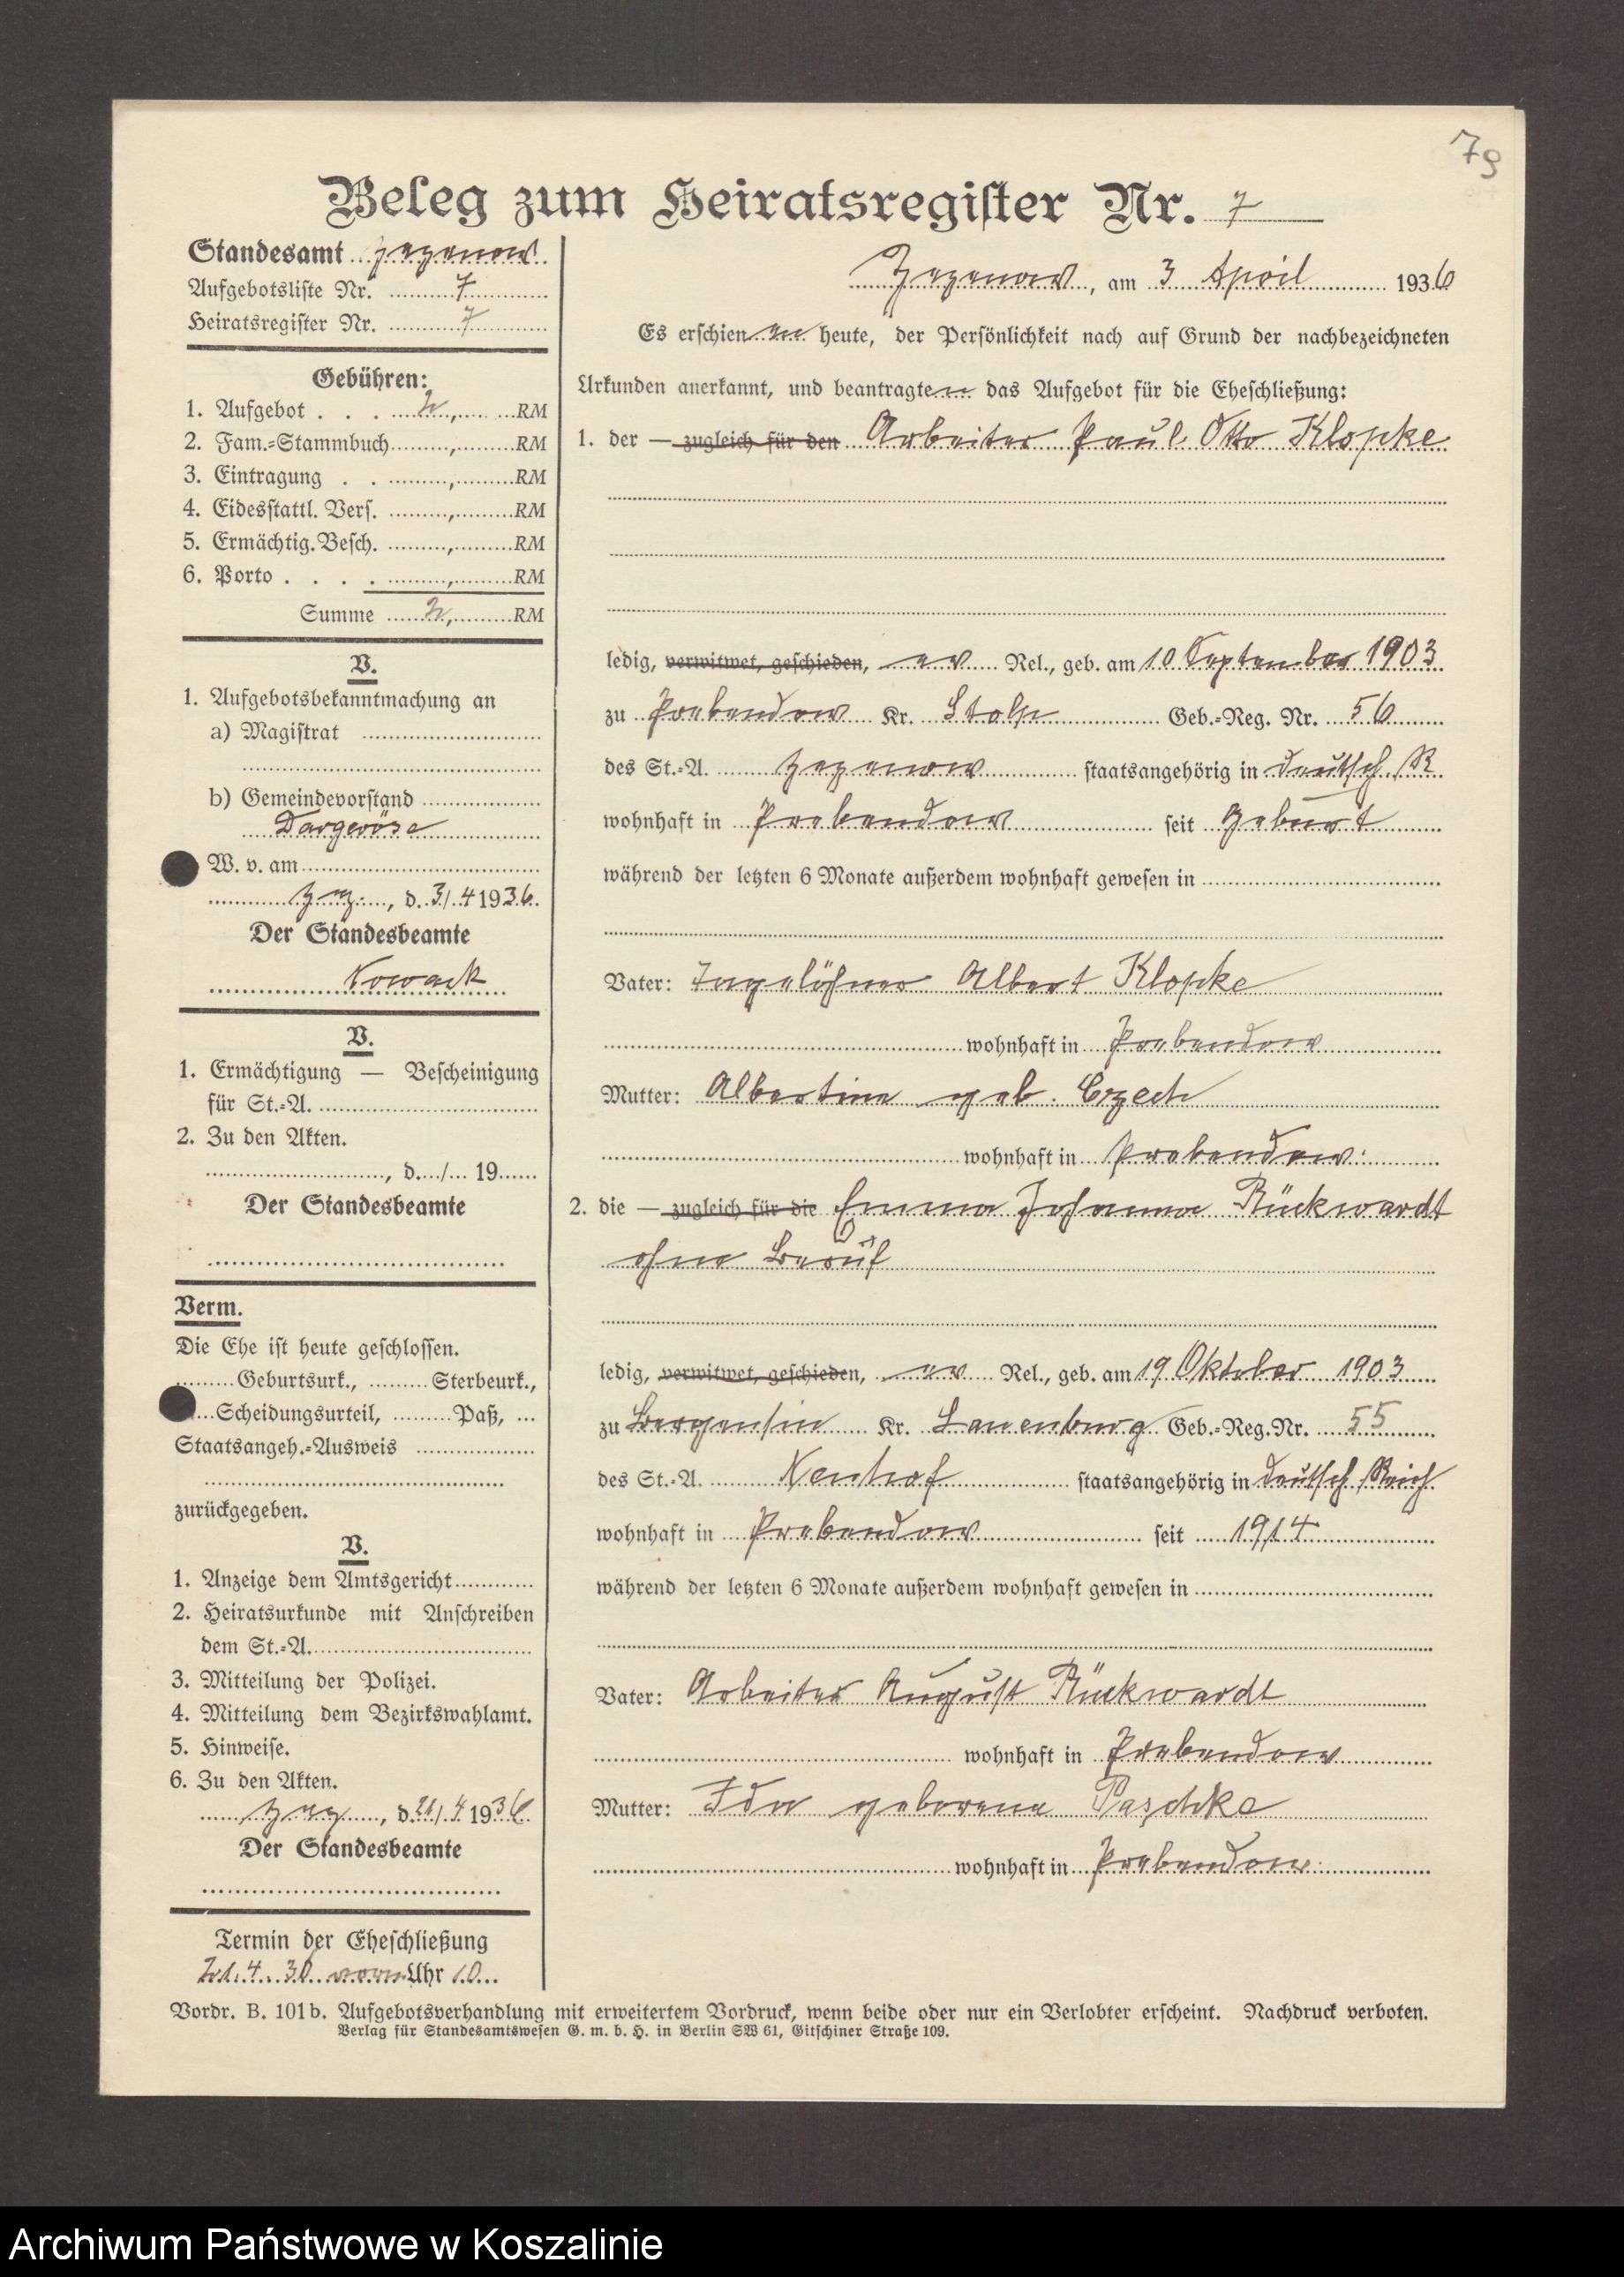 79
Beleg zum Heiratsregister Nr. 7
Standesamt Zezenow
Aufgebotsliste Nr. 7
Heiratsregister Nr. 7
Gebühren:
1. Aufgebot . . . 2, RM
2. Fam.-Stammbuch , RM
3. Eintragung . . , RM
4. Eidesstattl. Vers. , RM
5. Ermächtig. Besch. , RM
6. Porto . . . . , RM
Summe 2, RM
V.
1. Aufgebotsbekanntmachung an
a) Magistrat
b) Gemeindevorstand
Dargeröse
W. v. am
Zez., d. 3/4 1936.
Der Standesbeamte
Nowack
V.
1. Ermächtigung — Bescheinigung
für St.-A.
2. Zu den Akten.
, d. / 19
Der Standesbeamte
Verm.
Die Ehe ist heute geschlossen.
Geburtsurk., Sterbeurk.,
Scheidungsurteil, Paß, ...
Staatsangeh.-Ausweis
zurückgegeben.
V.
1. Anzeige dem Amtsgericht
2. Heiratsurkunde mit Anschreiben
dem St.-A.
3. Mitteilung der Polizei.
4. Mitteilung dem Bezirkswahlamt.
5. Hinweise.
6. Zu den Akten.
Zez, d. 21/4 1936
Der Standesbeamte
Termin der Eheschließung
21. 4. 36 vorm Uhr 10
Zezenow, am 3 April 1936
Es erschienen heute, der Persönlichkeit nach auf Grund der nachbezeichneten
Urkunden anerkannt, und beantragten das Aufgebot für die Eheschließung:
1. der — zugleich für den Arbeiter Paul Otto Klopke
ledig, verwitwet, geschieden, ev Rel., geb. am 10 September 1903
zu Prebendow Kr. Stolp Geb.-Reg. Nr. 56
des St.-A. Zezenow staatsangehörig in deutsch. R
wohnhaft in Prebendow seit Geburt
während der letzten 6 Monate außerdem wohnhaft gewesen in
Vater: Tagelöhner Albert Klopke
wohnhaft in Prebendow
Mutter: Albertine geb. Czech
wohnhaft in Prebendow.
2. die — zugleich für die Emma Johanna Rückwardt
ohne Beruf
ledig, verwitwet, geschieden, ev Rel., geb. am 19 Oktober 1903
zu Bergensin Kr. Lauenburg Geb.-Reg. Nr. 55
des St.-A. Neuhof staatsangehörig in deutsch Reich
wohnhaft in Prebendow seit 1914
während der letzten 6 Monate außerdem wohnhaft gewesen in
Vater: Arbeiter August Rückwardt
wohnhaft in Prebendow
Mutter: Ida geborene Paschke
wohnhaft in Prebendow.
Vordr. B. 101b. Aufgebotsverhandlung mit erweitertem Vordruck, wenn beide oder nur ein Verlobter erscheint. Nachdruck verboten.
Verlag für Standesamtswesen G. m. b. H. in Berlin SW 61, Gitschiner Straße 109.
Archiwum Państwowe w Koszalinie